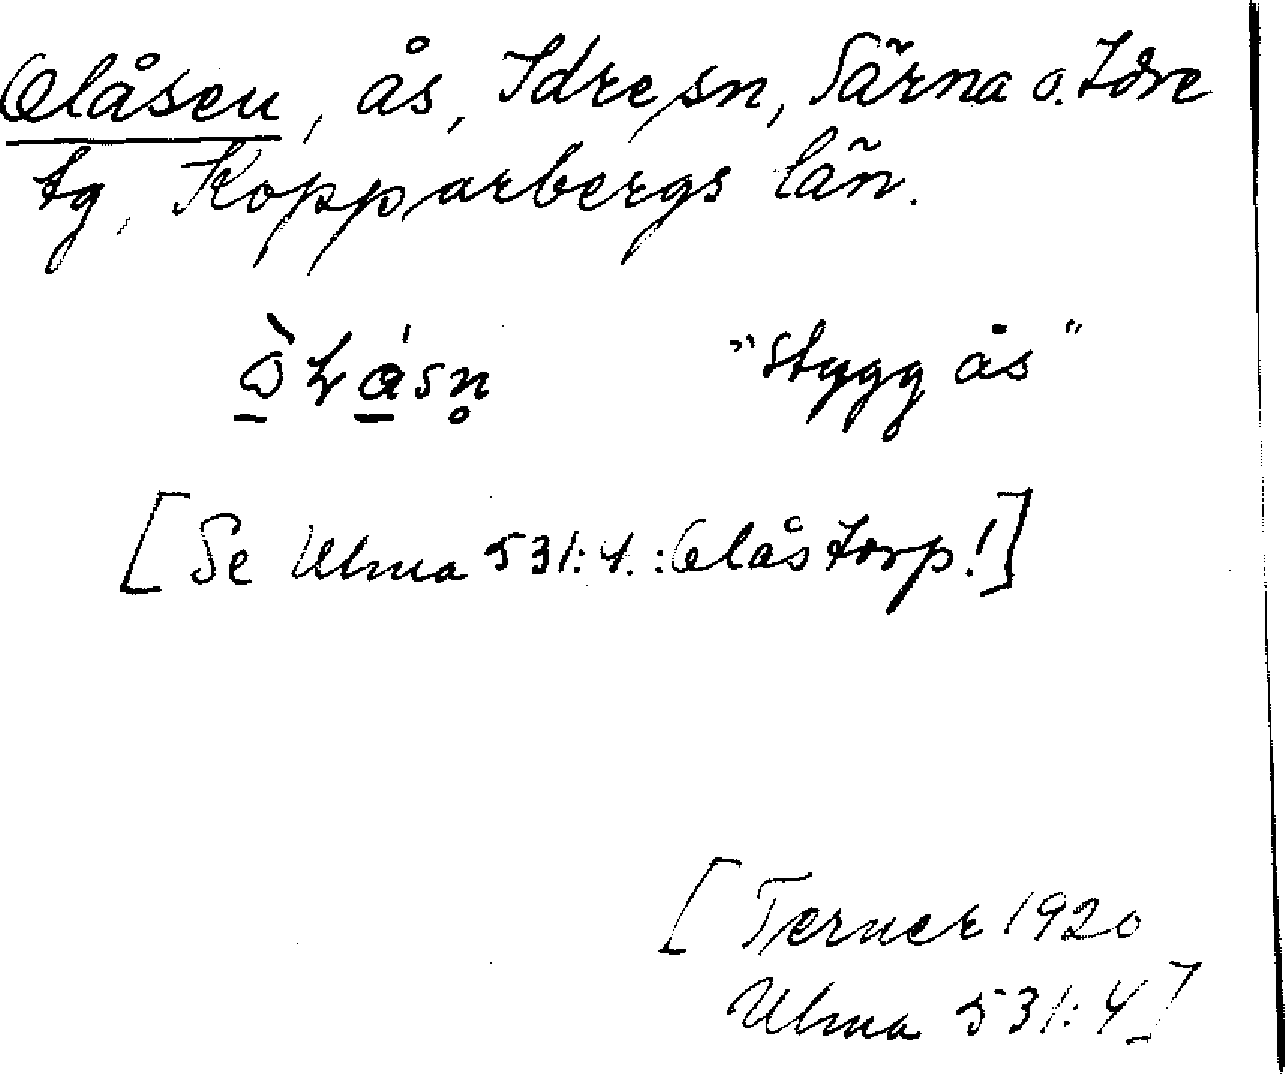 Olåsen, ås, Idre sn, Särna o. Idre
tg, Kopparbergs län.
"Stygg ås"
[Se Ulma 531:4. : Olåstorp!]
[Terner 1920
Ulma 531:4]